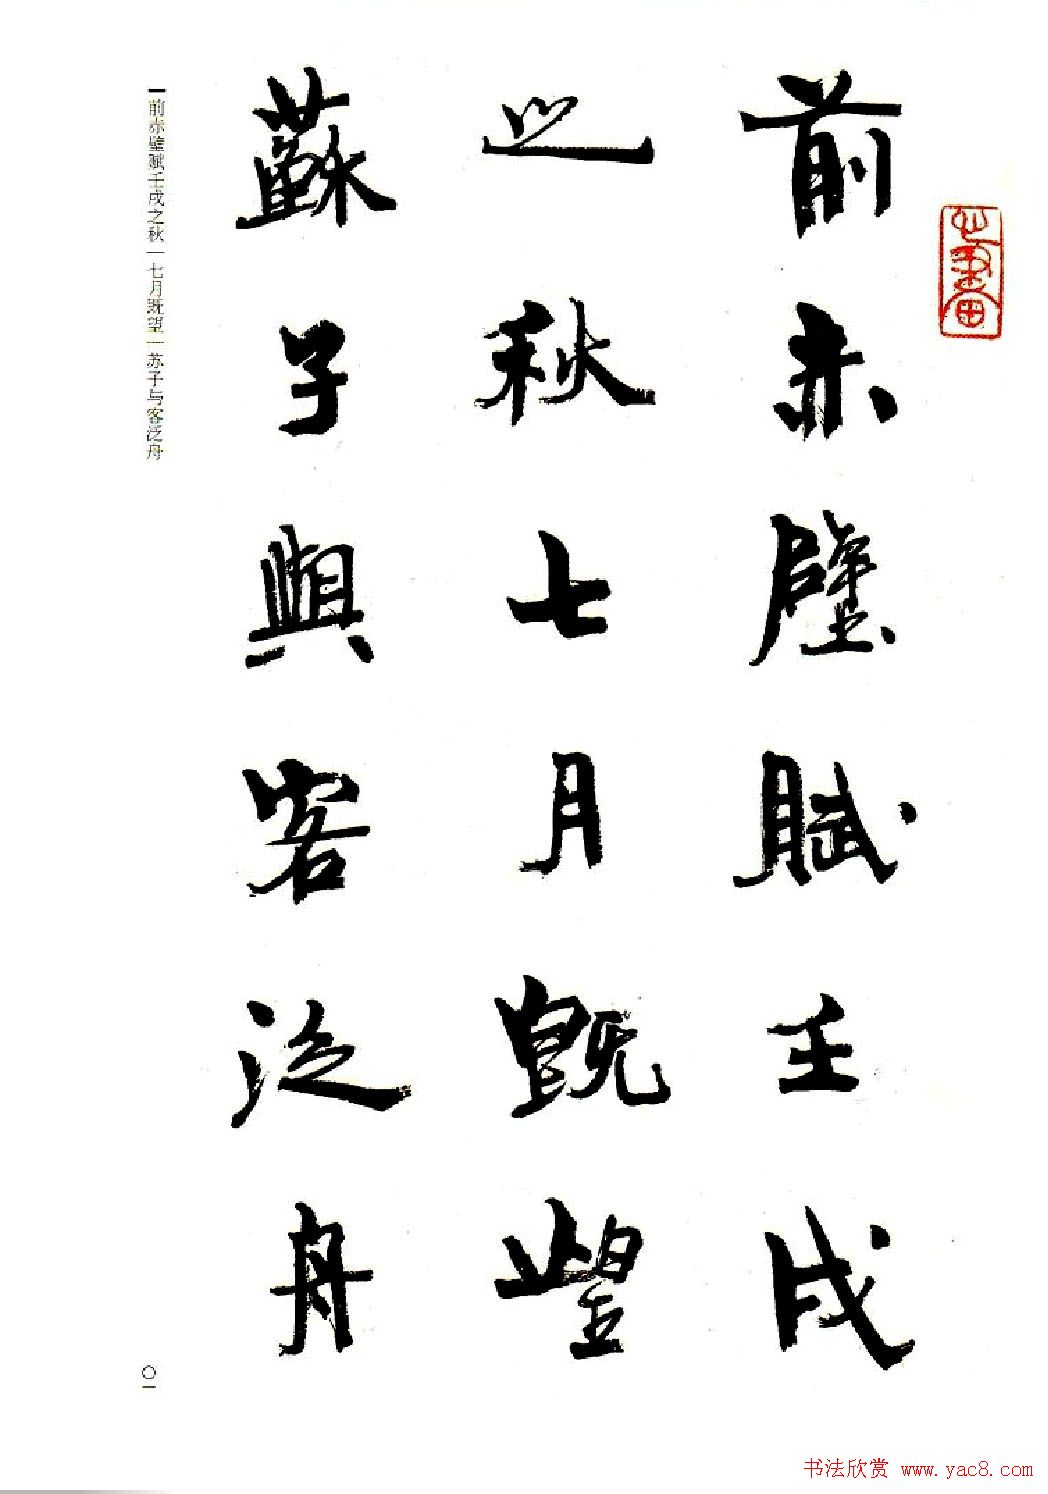 前赤壁賦壬戌
之秋七月既望
蘇子與客泛舟
前赤壁赋壬戌之秋|七月既望|苏子与客泛舟
〇一
书法欣赏 www.yac8.com